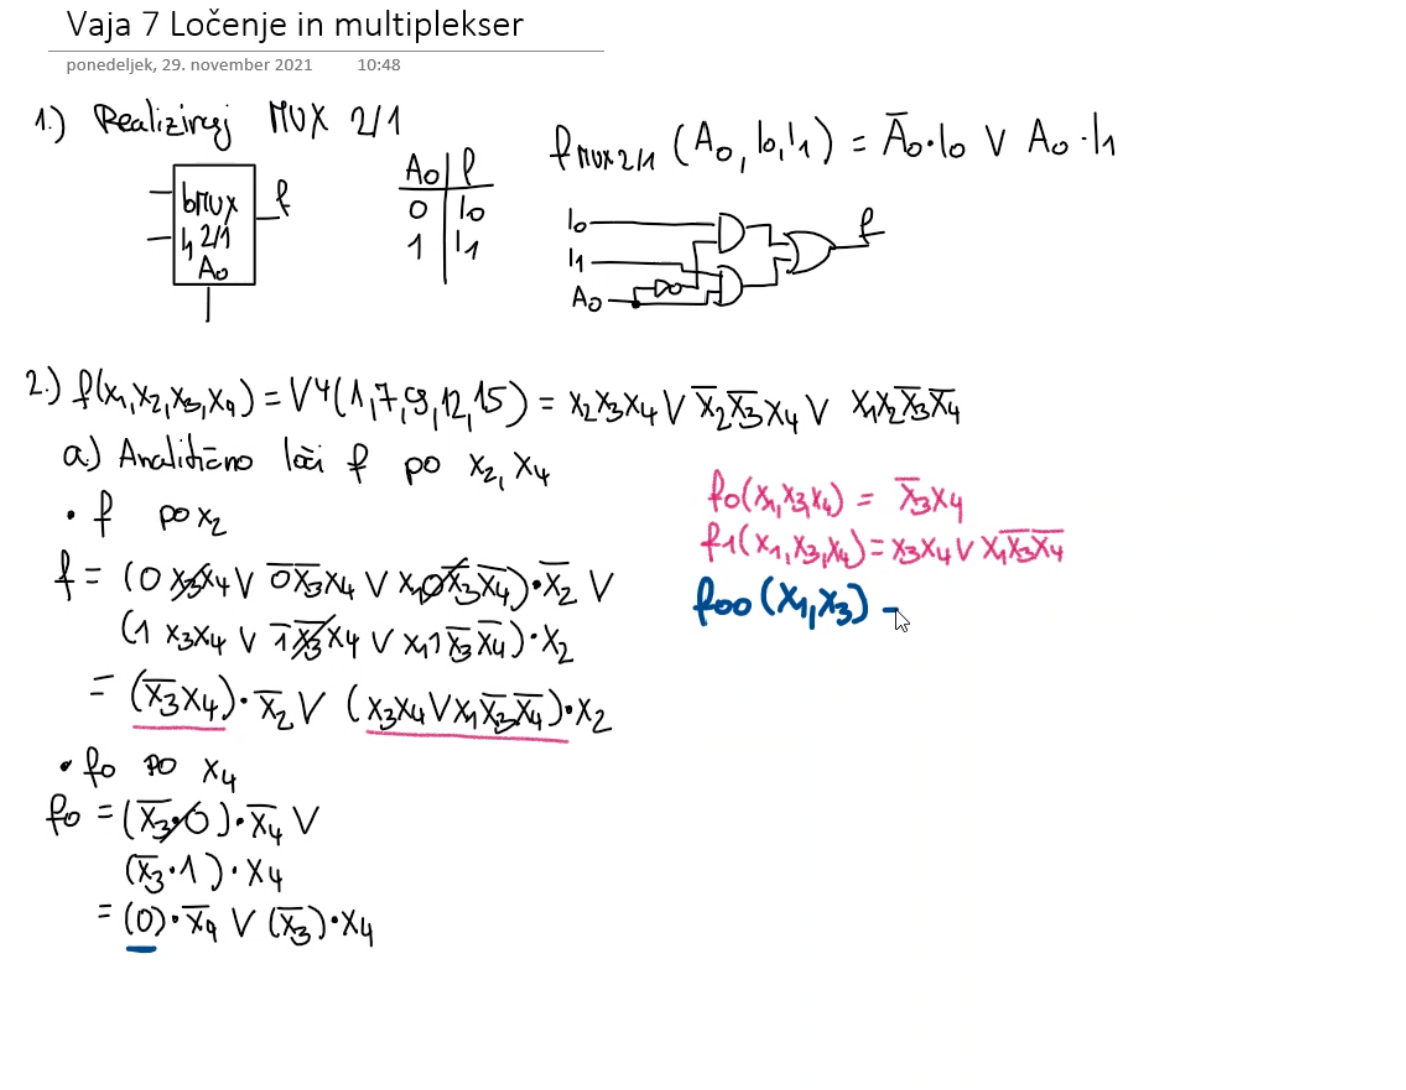 Vaja 7 Ločenje in multiplekser
ponedeljek, 29. november 2021 10:48
1.) Realiziraj MUX 2/1
I₀ MUX f
I₁ 2/1
A₀
A₀ | f
0 | I₀
1 | I₁
f MUX 2/1 (A₀, I₀, I₁) = A̅₀·I₀ V A₀·I₁
I₀
I₁
A₀
f
2.) f(x₁,x₂,x₃,x₄) = V⁴(1,7,9,12,15) = x₂x₃x₄ V x̅₂x̅₃x₄ V x₁x₂x̅₃x̅₄
a.) Analitično loči f po x₂, x₄
• f po x₂
f = (0 x₃x₄ V 0̅x̅₃x₄ V x₁0x̅₃x̅₄)·x̅₂ V
(1 x₃x₄ V 1̅x̅₃x₄ V x₁1x̅₃x̅₄)·x₂
= (x̅₃x₄)·x̅₂ V (x₃x₄ V x₁x̅₃x̅₄)·x₂
• f₀ po x₄
f₀ = (x̅₃·0)·x̅₄ V
(x̅₃·1)·x₄
= (0)·x̅₄ V (x̅₃)·x₄
f₀(x₁,x₃,x₄) = x̅₃x₄
f₁(x₁,x₃,x₄) = x₃x₄ V x₁x̅₃x̅₄
f₀₀(x₁,x₃) -